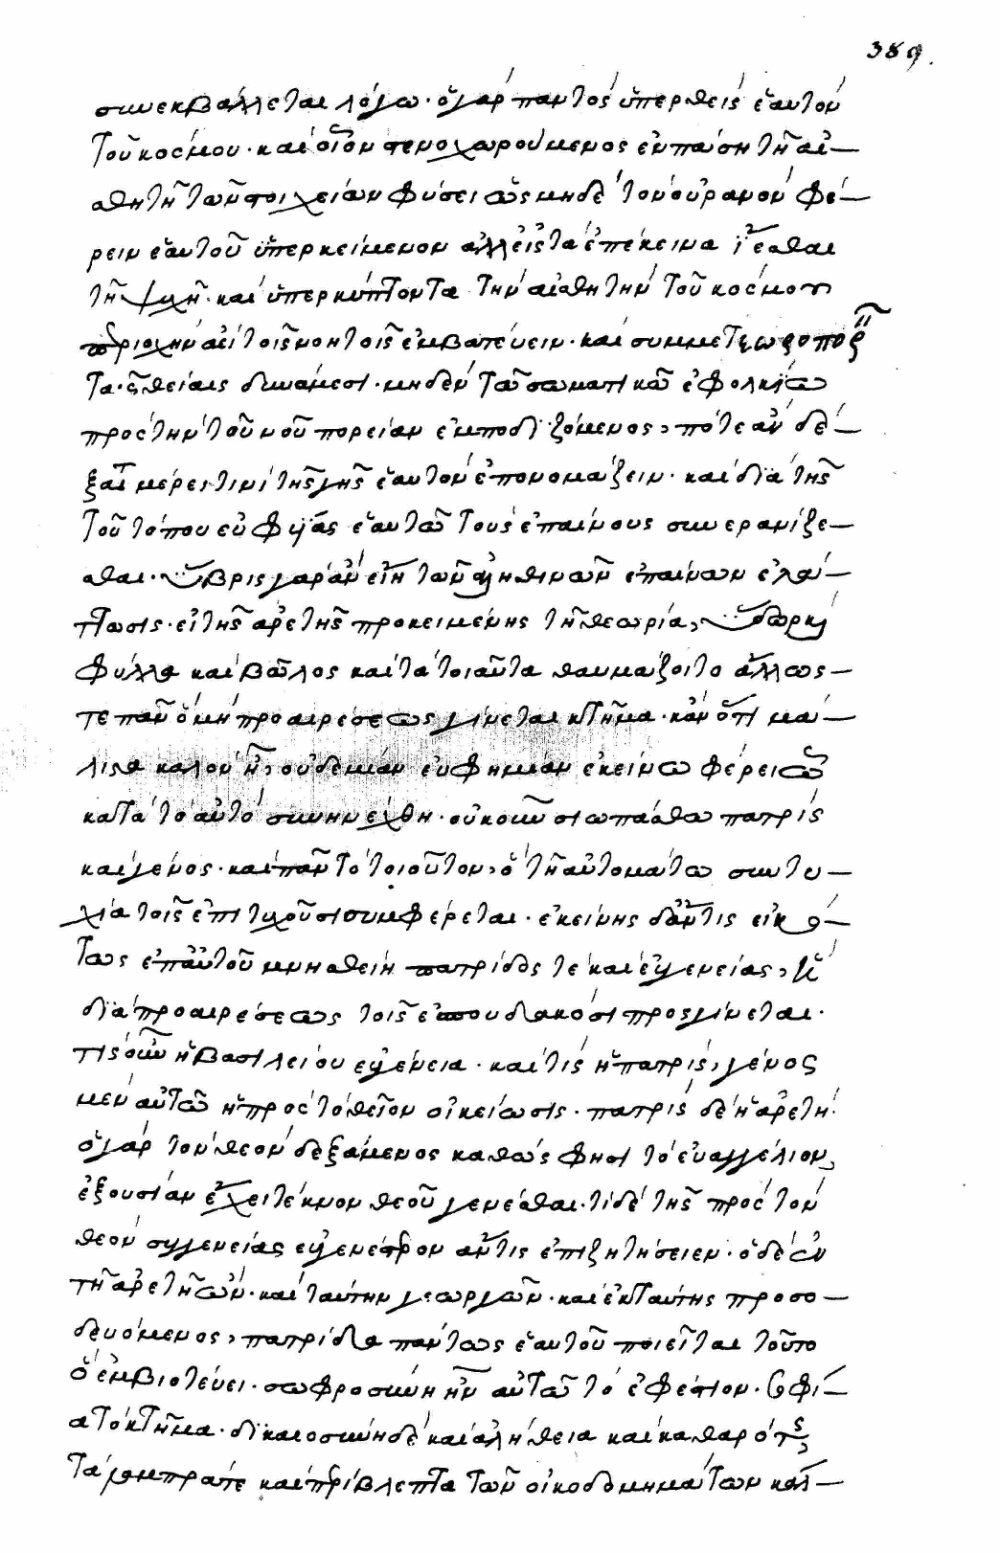 389.
συνεκβάλλεται λόγω· ὁ γὰρ παντὸς ὑπερθεὶς ἑαυτὸν
τοῦ κοσμου· καὶ οἷον στενοχωρούμενος ἐν πάση τῆ αἰ–
σθητῆ τῶν στοιχείων φύσει ὡς μηδὲ τὸν οὐρανὸν φέ–
ρειν ἑαυτοῦ ὑπερκείμενον ἀλλ εἰς τὰ ἐπέκεινα ἵεσθαι
τῆ ψυχῆ· καὶ ὑπερκύπτοντα τὴν αἰσθητὴν τοῦ κοσμου
περιοχὴν ἀεὶ τοῖς νοητοῖς ἐμβατεύειν· καὶ συμμετεωροπορ
τα· ς θείαις δυνάμεσι· μηδὲν τῶ σωματικῶ ἐφολκίω
πρὸς τὴν τοῦ νοῦ πορείαν ἐμποδιζόμενος, πότε ἂν δέ–
ξαιτ μέρει τινὶ τῆς γῆς ἑαυτὸν ἐπονομάζειν· καὶ διὰ τῆς
τοῦ τόπου εὐφυΐας ἑαυτῶ τοὺς ἐπαίνους συνερανίζε–
σθαι· ὕβρις γὰρ ἂν εἴη τῶν ἀληθινῶν ἐπαίνων ἐλάτ–
τωσις· εἰ τῆς ἀρετῆς προκειμένης τῆ θεωρία, ὕδωρ κὶ
φύλλα καὶ βῶλος καὶ τὰ τοιαῦτα θαυμάζοιτο ἄλλως–
τε πᾶν ὃ μὴ προαιρέσεως γίνεται κτῆμα· κἂν ὅτι μά–
λιστα καλὸν ἦ, οὐδεμίαν εὐφημίαν ἐκείνω φέρει ὧ
κατὰ τὸ αὐτὸ συνηνέχθη· οὐκοῦν σιωπάσθω πατρὶς
καὶ γένος· καὶ πᾶν τὸ τοιοῦτον, ὃ τῆ αὐτομάτω συντυ–
χία τοῖς ἐπιτυχοῦσι συμφέρεται· ἐκείνης δ ἄν τις εἰκό–
τως ἐπ αὐτοῦ μνησθείη πατρίδος τε καὶ εὐγενείας, ἣ
διὰ προαιρέσεως τοῖς ἐσπουδακόσι προςγίνεται·
τίς οὖν ἡ βασιλείου εὐγένεια· καὶ τίς ἡ πατρίς, γένος
μὲν αὐτῶ ἡ πρὸς τὸ θεῖον οἰκείωσις· πατρὶς δὲ ἡ ἀρετή·
ὁ γὰρ τὸν θεὸν δεξάμενος καθώς φησι τὸ εὐαγγέλιον,
ἐξουσίαν ἔχει τέκνον θεοῦ γενέσθαι· τί δὲ τῆς πρὸς τὸν
θεὸν συγγενείας εὐγενέστερον ἄν τις ἐπιζητήσειεν· ὁ δὲ ἐν
τῆ ἀρετῆ ὤν· καὶ ταύτην γεωργῶν· καὶ ἐκ ταύτης προσο–
δευόμενος, πατρίδα πάντως ἑαυτοῦ ποιεῖται τοῦτο
ὃ ἐμβιοτεύει· σωφροσύνη ἦν αὐτῶ τὸ ἐφέστιον· σοφί–
α τὸ κτῆμα· δικαιοσύνη δὲ καὶ ἀλήθεια καὶ καθαρότς,
τὰ λαμπρά τε καὶ περίβλεπτα τῶν οἰκοδομημάτων κάλ–